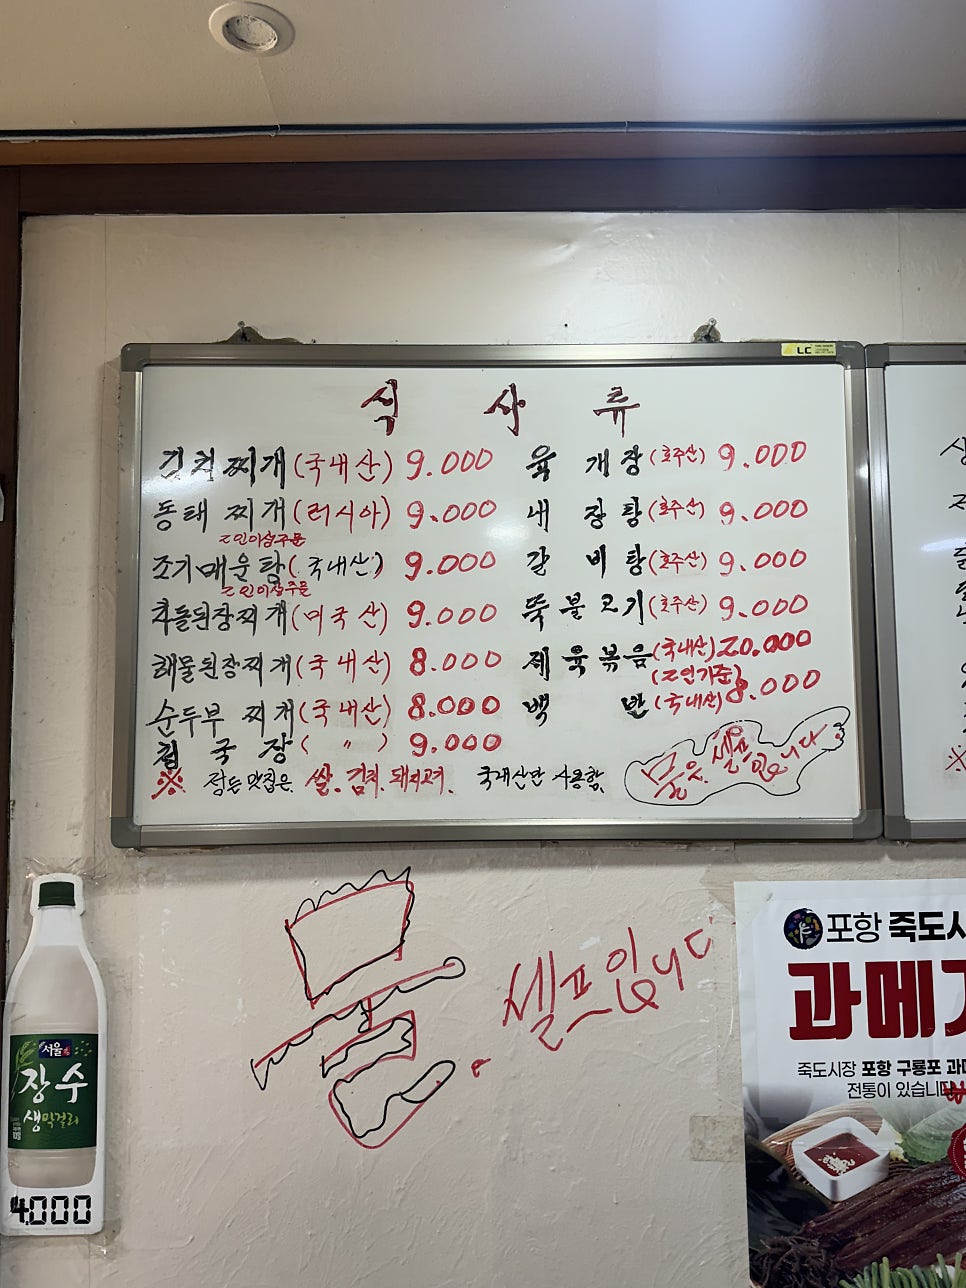 LC
식 사 류
김치찌개(국내산) 9.000
동태찌개(러시아) 9.000
2인이상주문
조기매운탕(국내산) 9.000
2인이상주문
차돌된장찌개(미국산) 9.000
해물된장찌개(국내산) 8.000
순두부찌개(국내산) 8.000
청국장( 〃 ) 9.000
육개장(호주산) 9.000
내장탕(호주산) 9.000
갈비탕(호주산) 9.000
뚝불고기(호주산) 9.000
제육볶음(국내산) 20.000
(2인기준)
백반(국내산) 8.000
※ 정든맛집은 쌀. 김치. 돼지고기. 국내산만 사용함.
물은 셀프입니다
물은 셀프입니다
서울
장수
생막걸리
4.000
포항 죽도시
과메기
죽도시장 포항 구룡포 과메
전통이 있습니다